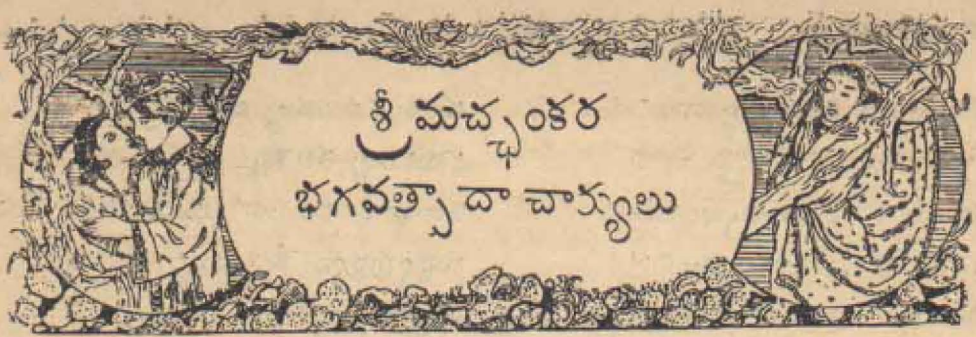 శ్రీమచ్ఛంకర
భగవత్పాదాచార్యులు